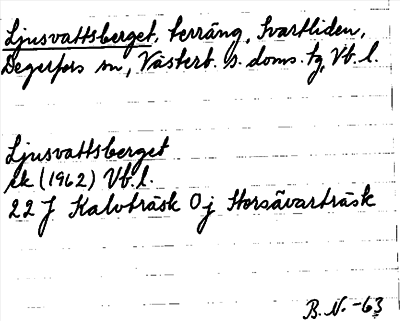 Ljusvattsberget, terräng, Svartliden,
Degerfors sn, Västerb. s. doms. tg, Vb. l.
Ljusvattsberget
ek (1962) Vb. l.
22 J Kalvträsk 0j Storsävarträsk
B. N. -63